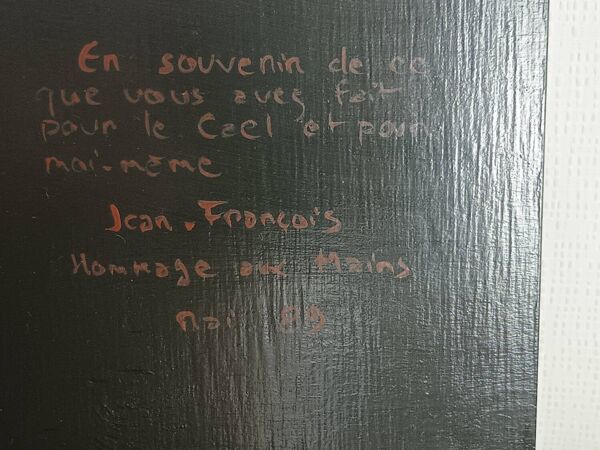 En souvenir de ce
que vous avez fait
pour le Cael et pour
moi-même
Jean-François
Hommage aux Mains
mai 89